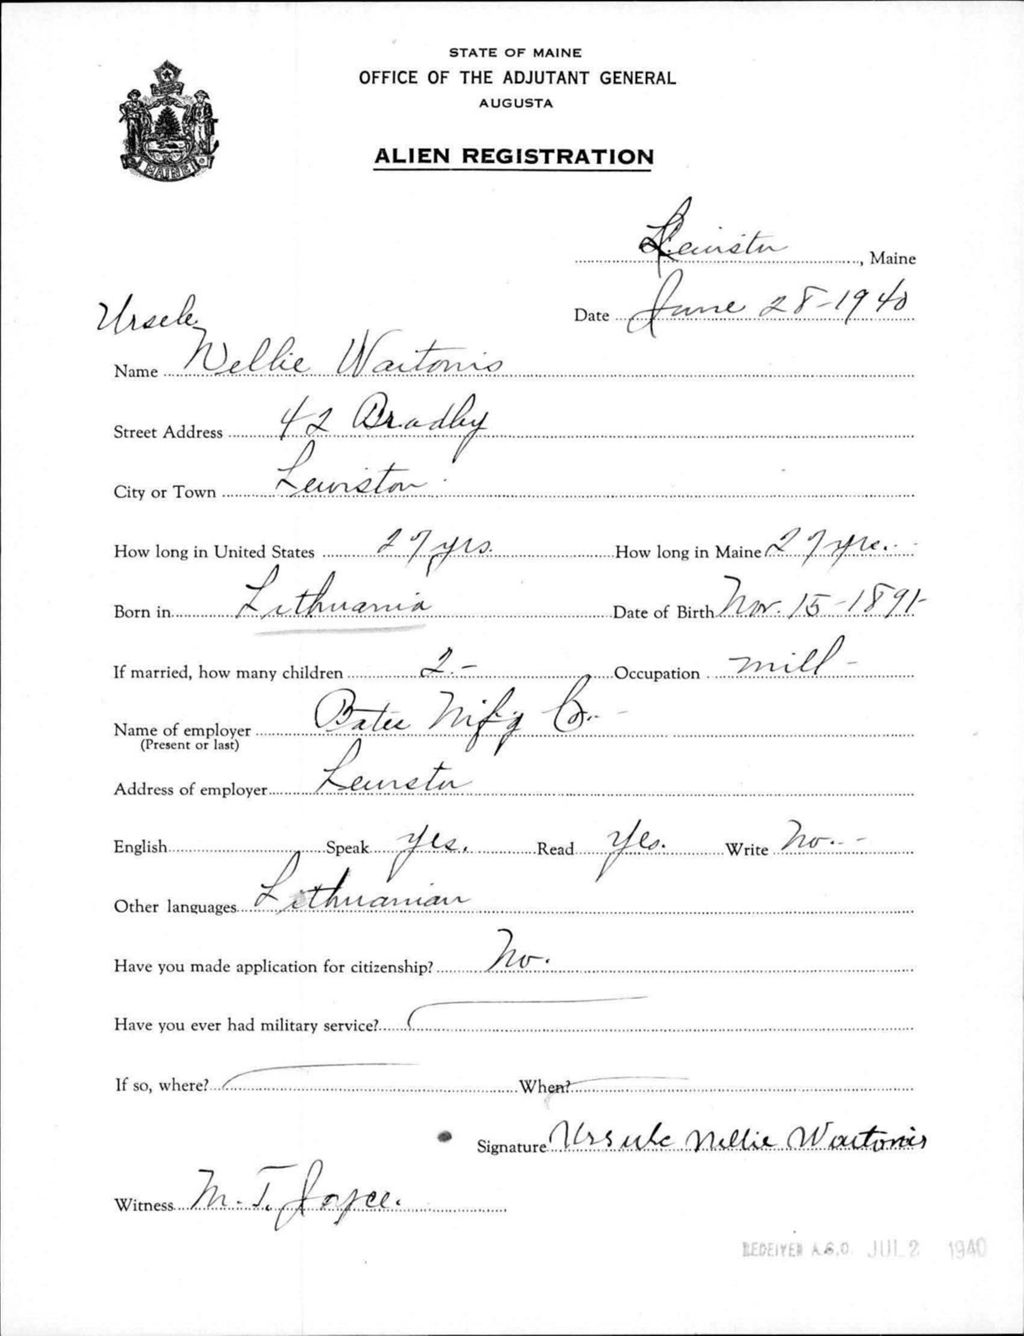 STATE OF MAINE
OFFICE OF THE ADJUTANT GENERAL
AUGUSTA
ALIEN REGISTRATION
MAINE
Lewiston, Maine
Date June 28-1940
Ursele
Name Nellie Waitonis
Street Address 42 Bradley
City or Town Lewiston
How long in United States 27 yrs. How long in Maine 27 yrs.
Born in Lithuania Date of Birth Nov. 15-1891-
If married, how many children 2.- Occupation mill-
Name of employer Bates M'f'g Co.-
(Present or last)
Address of employer Lewiston
English Speak yes. Read Yes. Write No.-
Other languages Lithuanian
Have you made application for citizenship? No.
Have you ever had military service?
If so, where? When?
Signature Ursule Nellie Waitonis
Witness M.T. Joyce.
RECEIVED A.G.O. JUL 2 1940